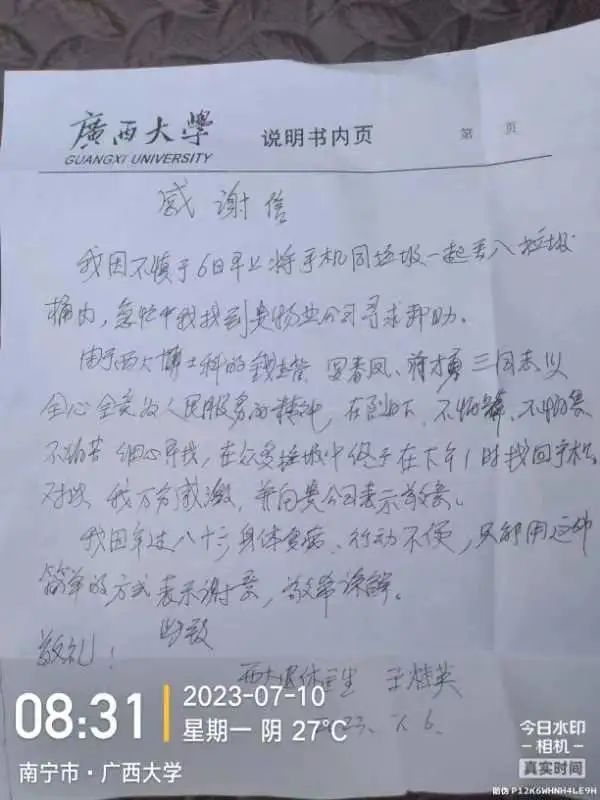 廣西大學 说明书内页 第 页
GUANGXI UNIVERSITY
感谢信
我因不慎于6日早上将手机同垃圾一起丢入垃圾
桶内，急忙中我找到贵物业公司寻求帮助。
由于西大博士科的钱主管 、蒋才勇三同志以
全心全意为人民服务的精神，在烈日下，不怕 、不怕臭
不怕苦 细心寻找，在众多垃圾中终于在下午1时找回手机
对此 我万分感激，并向贵公司表示敬意。
我因年过八十 身体多病、行动不便，只能用这种
简单的方式表示谢意，敬希谅解。
此致
敬礼！
西大退休医生 王桂英
2023. 7. 6.
08:31
2023-07-10
星期一 阴 27℃
南宁市·广西大学
今日水印
-相机-
真实时间
防伪 P12K6WHNH4LE9H